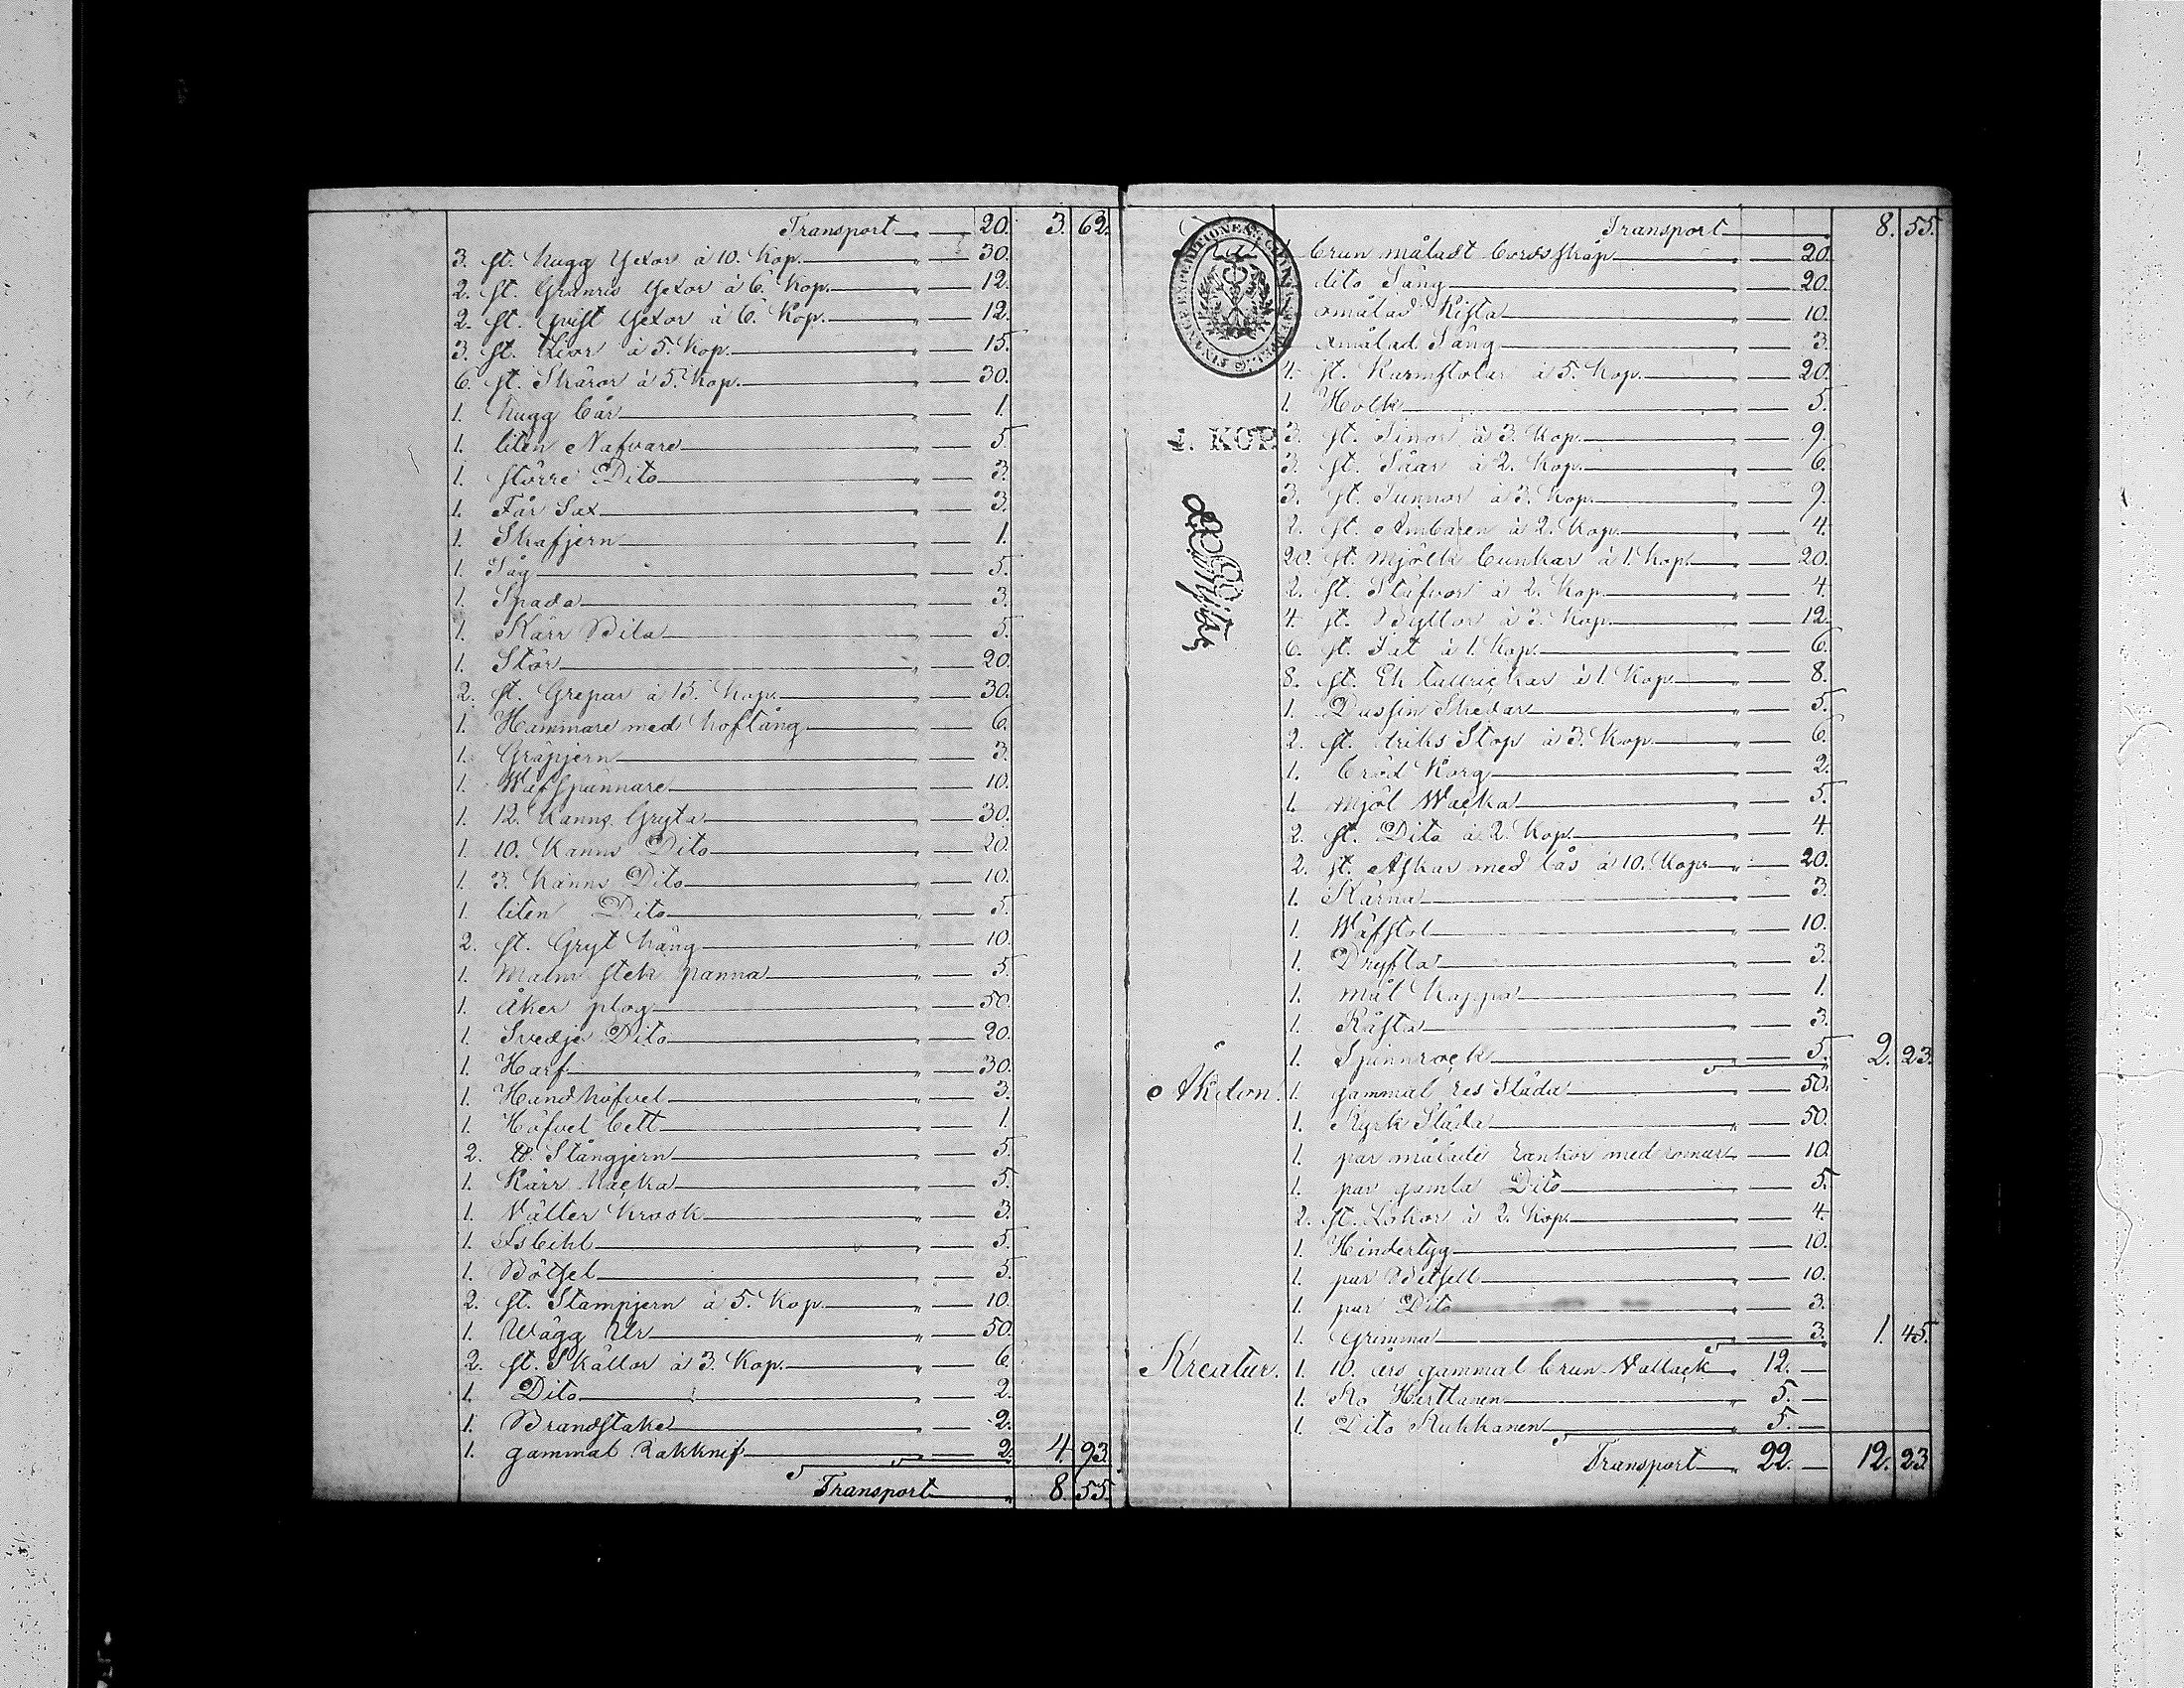 Transport 20. 3. 62.
3. st. hugg Yxor à 10. Kop. " 30.
2. st. Granris Yxor à 6. Kop. " 12.
2. st. qvist Yxor à 6. Kop. " 12.
3. st. Liar à 5. Kop. " 15.
6. st. Skäror à 5. Kop. " 30.
1. hugg bår " 1.
1. liten Nafvare " 5.
1. större Dito " 3.
1. Får Sax " 3.
1. Skafjern " 1.
1. Såg " 5.
1. Spada " 3.
1. Kärr Bila " 5.
1. Stör " 20.
2. st. Grepar à 15. Kop. " 30.
1. Hammare med hoftång " 6.
1. Gräpjern " 3.
1. Wäfspännare " 10.
1. 12. Kanns Gryta " 30.
1. 10. Kanns Dito " 20.
1. 3. Kanns Dito " 10.
1. liten Dito " 5.
2. st. Gryt häng " 10.
1. Malm stek panna " 5.
1. åker plog " 50.
1. Svedje Dito " 20.
1. Harf " 30.
1. Handhöfvel " 3.
1. Höfvel bett " 1.
2. ℔. Stångjern " 5.
1. Kärr hacka " 5.
1. Nätter krook " 3.
1. Isbihl " 5.
1. Bötsel " 5.
2. st. Stampjern à 5. Kop. " 10.
1. Wägg Ur " 50.
2. st. Skällor à 3. Kop. " 6.
1. Dito " 2.
1. Brandstake " 2.
1. gammal Rakknif " 2. 4. 93.
Transport " 8. 55.
Transport 8. 55.
1. brun måladt bordsskåp " 20.
dito Säng " 20.
omålad Kista " 10.
omålad Säng " 3.
4. st. Karmstolar à 5. Kop. " 20.
1. Holk " 5.
3. st. Tinor à 3. Kop. " 9.
3. st. Såar à 2. Kop. " 6.
3. st. Tunnor à 3. Kop. " 9.
2. st. Ambaren à 2. Kop. " 4.
20. st. Mjölk bunkar à 1. Kop. " 20.
2. st. Stäfvor à 2. Kop. " 4.
4. st. Byttor à 3. Kop. " 12.
6. st. Fat à 1. Kop. " 6.
8. st. Eh tallrickar à 1. Kop. " 8.
1. Dussin Skedar " 5.
2. st. driks Stop à 3. Kop. " 6.
1. bröd Korg " 2.
1. mjöl Wacka " 5.
2. st. Dito à 2. Kop. " 4.
2. st. Askar med lås à 10. Kop. " 20.
1. Kärna " 3.
1. Wäfstol " 10.
1. Dryfta " 3.
1. mål Kappa " 1.
1. Räfsta " 3.
1. Spinnrock " 5. 2. 23.
Åkdon. 1. gammal res Släda " 50.
1. Kyrk Släda " 50.
1. par målade rankor med " 10.
1. par gamla Dito " 5.
2. st. Lokor à 2. Kop. " 4.
1. Hindertyg " 10.
1. par Betsell " 10.
1. par Dito " 3.
1. Grimma " 3. 1. 45.
Kreatur. 1. 10. års gammal brun Vallack 12. —
1. Ko Herttanen 5. —
1. Dito Rukkanen 5. —
Transport " 22. — 12. 23.
1. KOP.